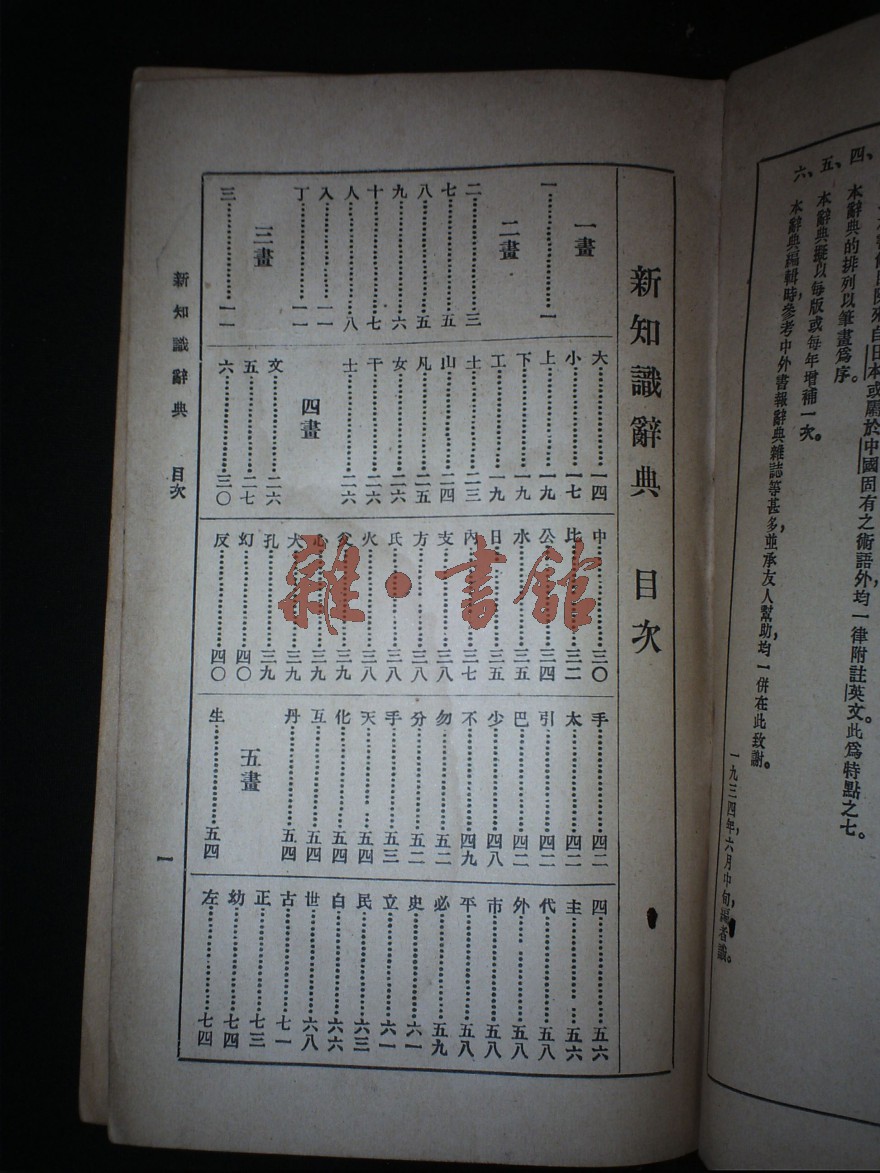 來自日本或屬於中國固有之術語外,均一律附註英文此爲特點之七。
四、本辭典的排列以筆畫爲序。
五、本辭典擬以每版或每年增補一次。
六、本辭典編輯時,參考中外書報辭典雜誌等甚多,並承友人幫助,均一併在此致謝。
一九三四年,六月中旬,編者識。
新知識辭典 目次
一畫
一…………一
二畫
二…………三
七…………五
八…………五
九…………六
十…………七
人…………八
入…………一一
丁…………一一
三畫
三…………一一
大…………一四
小…………一七
上…………一九
下…………一九
工…………一九
土…………二三
山…………二四
凡…………二五
女…………二六
干…………二六
士…………二六
四畫
文…………二六
五…………二七
六…………三〇
中…………三〇
比…………三二
公…………三四
水…………三五
日…………三五
內…………三七
支…………三八
方…………三八
氏…………三八
火…………三八
父…………三九
心…………三九
犬…………三九
孔…………三九
幻…………四〇
反…………四〇
手…………四二
太…………四二
引…………四二
巴…………四二
少…………四八
不…………四九
勿…………五二
分…………五二
手…………五三
天…………五四
化…………五四
互…………五四
丹…………五四
五畫
生…………五四
四…………五六
主…………五六
代…………五八
外…………五八
市…………五八
平…………五八
必…………五九
史…………六一
立…………六一
民…………六三
白…………六六
世…………六八
古…………七一
正…………七三
幼…………七四
左…………七四
新知識辭典 目次
一
雜·書館